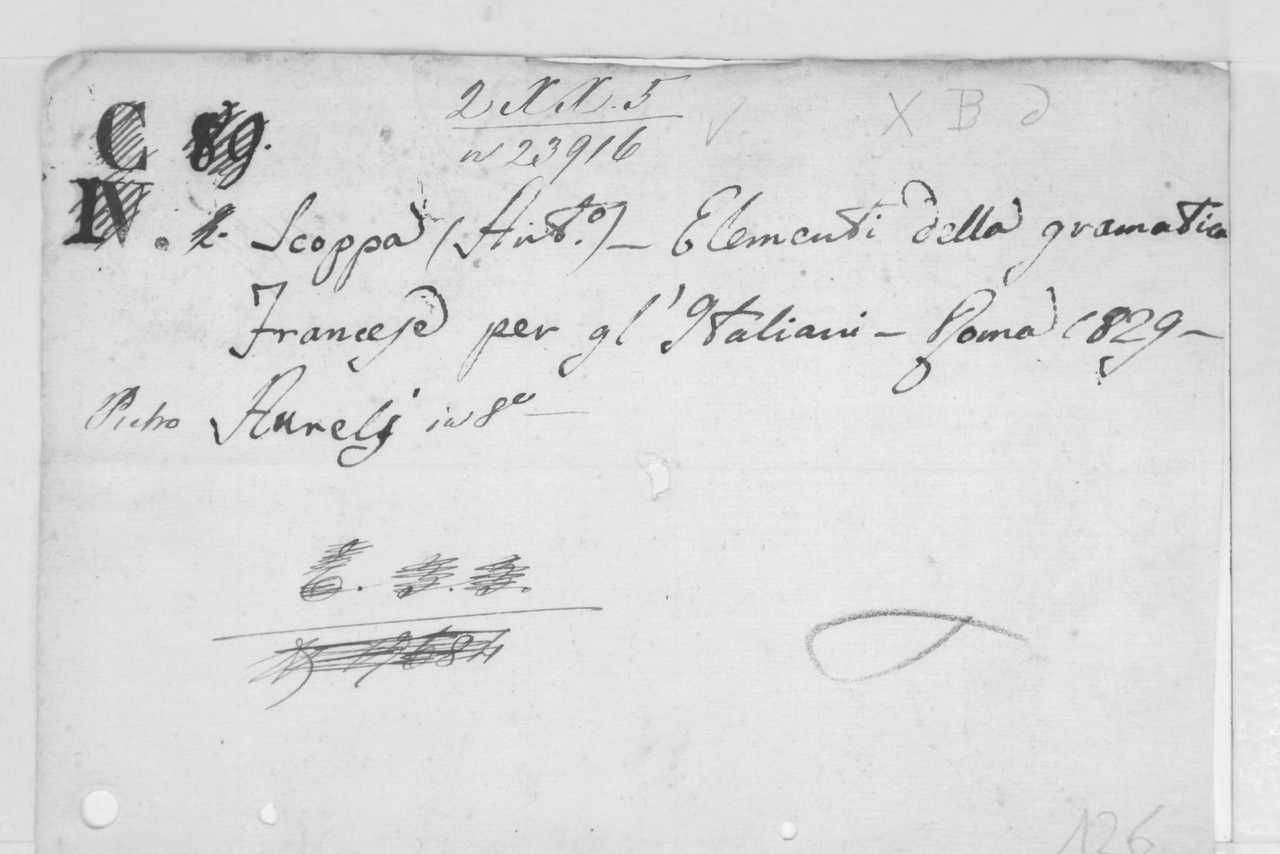 2 XX. 5
C 89.
n 23916
X B d
IV. 2. Scoppa (Ant.o) – Elementi della gramatica
Francese per gl'Italiani – Roma 1829 –
Pietro Aurelj in 8o –
126